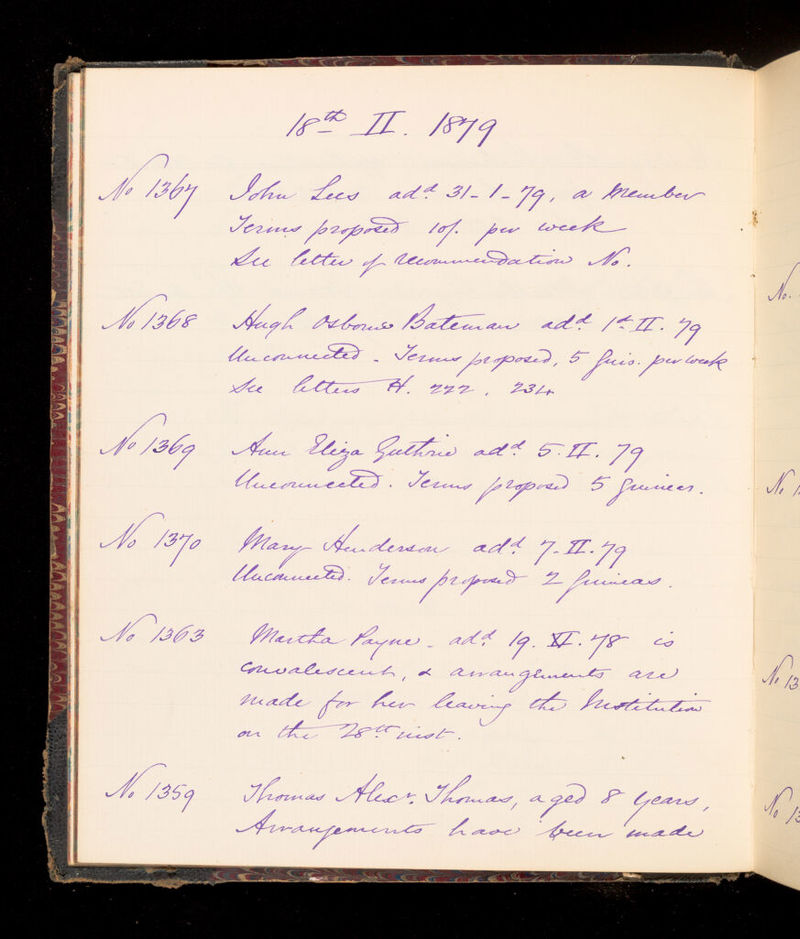 18th II. 1879
No 1367 John Lees add. 31-1-79, a Member
Terms proposed 10/. per week
See letter of recommendation No.
No 1368 Hugh Osborne Bateman add 1st II. 79
Unconnected - Terms proposed, 5 Guis. per week
See letters H. 222. 234
No 1369 Ann Eliza Guthrie add. 5. II. 79
Unconnected. Terms proposed 5 guineas.
No 1370 Mary Henderson add. 7. II. 79
Unconnected. Terms proposed 2 guineas.
No 1363 Martha Payne - add. 19. XI. 78 is
convalescent, & arrangements are
made for her leaving the Institution
on the 28th inst.
No 1359 Thomas Alexr. Thomas, aged 8 years,
Arrangements have been made
No.
No 1
No 13
No 13